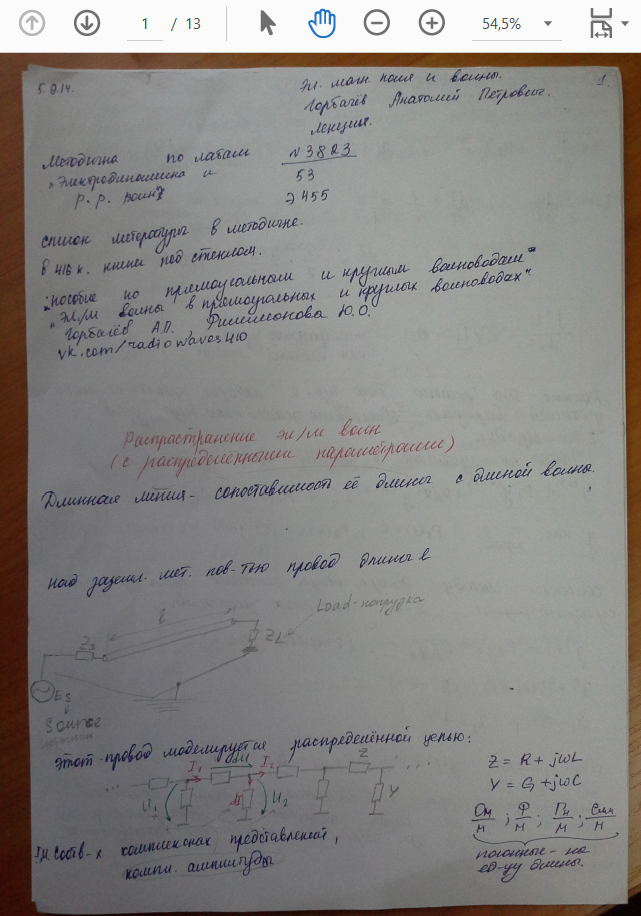 1 / 13
54,5%
5.9.14.
1.
Эл. магн. поля и волны.
Горбачёв Анатолий Петрович.
Лекция.
Методичка по лабам №3823
"Электродинамика и 53
р.р. волн" Э 455
список литературы в методичке.
в 416 к. книги под стеклом.
"пособие по прямоугольным и круглым волноводам"
"Эл/м волны в прямоугольных и круглых волноводах"
Горбачёв А.П., Филимонова Ю.О.
vk.com/radiowaves410
Распространение эл/м волн
(с распределёнными параметрами)
Длинная линия - сопоставимость её длины с длиной волны.
над заземл. мет. пов-тью провод длины l
Load-нагрузка
l
Zs
ZL
Es
Source
источник
Этот провод моделируется распределённой цепью:
I1 I2 Z
U1 U2 Y
Z = R + jωL
Y = G + jωC
Ом/м ; Ф/м ; Гн/м ; Сим/м
погонные - на
ед-цу длины.
комплексных представлений,
компл. амплитуды